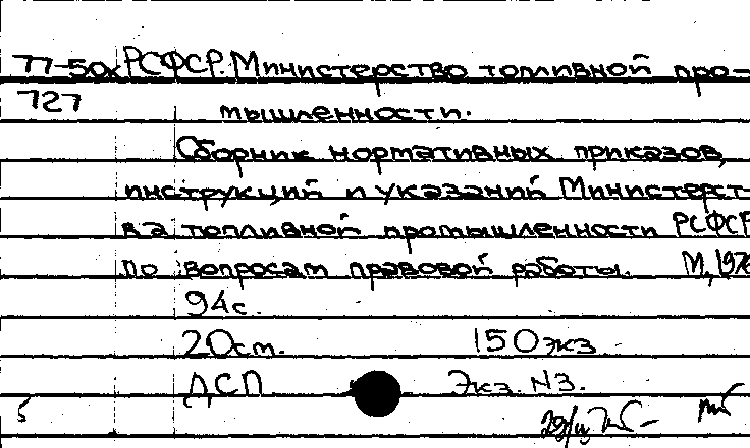 77-50х РСФСР. Министерство топливной про-
727 мышленности.
Сборник нормативных приказов,
инструкций и указаний Министерст-
ва топливной промышленности РСФСР
по вопросам правовой работы. М, 197
94с.
20см. 150экз
ДСП Экз. №3.
5